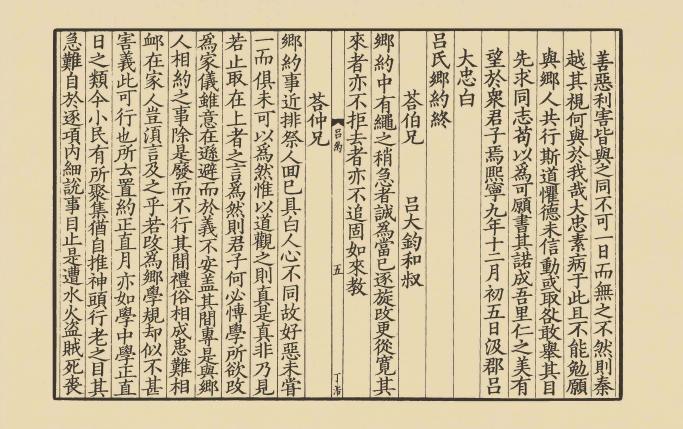 善惡利害皆與之同不可一日而無之不然則秦
越其視何與於我哉大忠素病于此且不能勉願
與鄉人共行斯道懼德未信動或取咎敢舉其目
先求同志苟以為可願書其諾成吾里仁之美有
望於衆君子焉熙寧九年十二月初五日汲郡呂
大忠白
呂氏鄉約終
荅伯兄 呂大鈞和叔
鄉約中有繩之稍急者誠為當已逐旋改更從寬其
來者亦不拒去者亦不追固如來教
呂約
五
丁㳓
荅仲兄
鄉約事近排祭人回已具白人心不同故好惡未甞
一而俱未可以為然惟以道觀之則真是真非乃見
若止取在上者之言為然則君子何必博學所欲改
為家儀雖意在遜避而於義不安盖其間專是與鄉
人相約之事除是廢而不行其間禮俗相成患難相
䘏在家人豈湏言及之乎若改為鄉學規却似不甚
害義此可行也所去置約正直月亦如學中學正直
日之類今小民有所聚集猶自推神頭行老之目其
急難自於逐項内細說事目止是遭水火盗賊死䘮